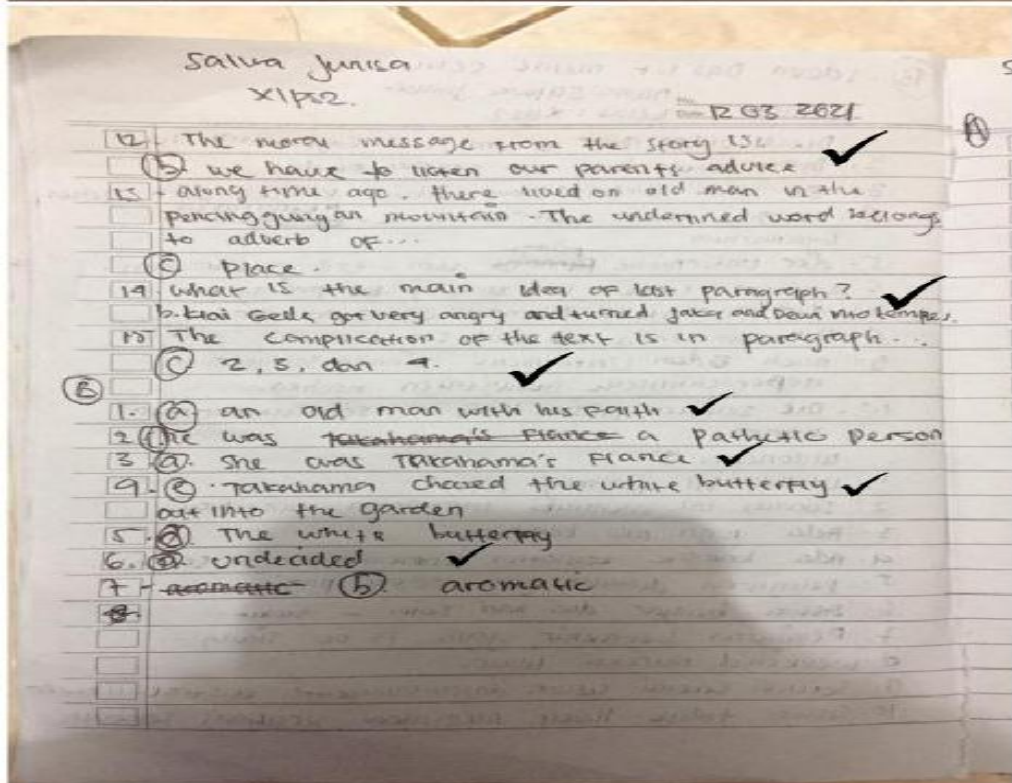 Salwa Junisa
XI ps2.
12 03 2021
12 - The moral message from the story is
b we have to listen our parents advice
13 - along time ago. there lived an old man in the
pencinggungan mountain. The underlined word belongs
to adverb of...
c place.
14 what is the main idea of last paragraph?
b. kiai Gede got very angry and turned jaka and Dewi into temples.
15 The complication of the text is in paragraph...
c 2, 3, dan 4.
B
1. a an old man with his faith
2 c he was Takahama's Fiance a Pathetic person
3 a. She was Takahama's Fiance
4. c. Takahama chased the white butterfly
out into the garden
5. a The white butterfly
6. undecided
7 - aromatic b aromatic
A